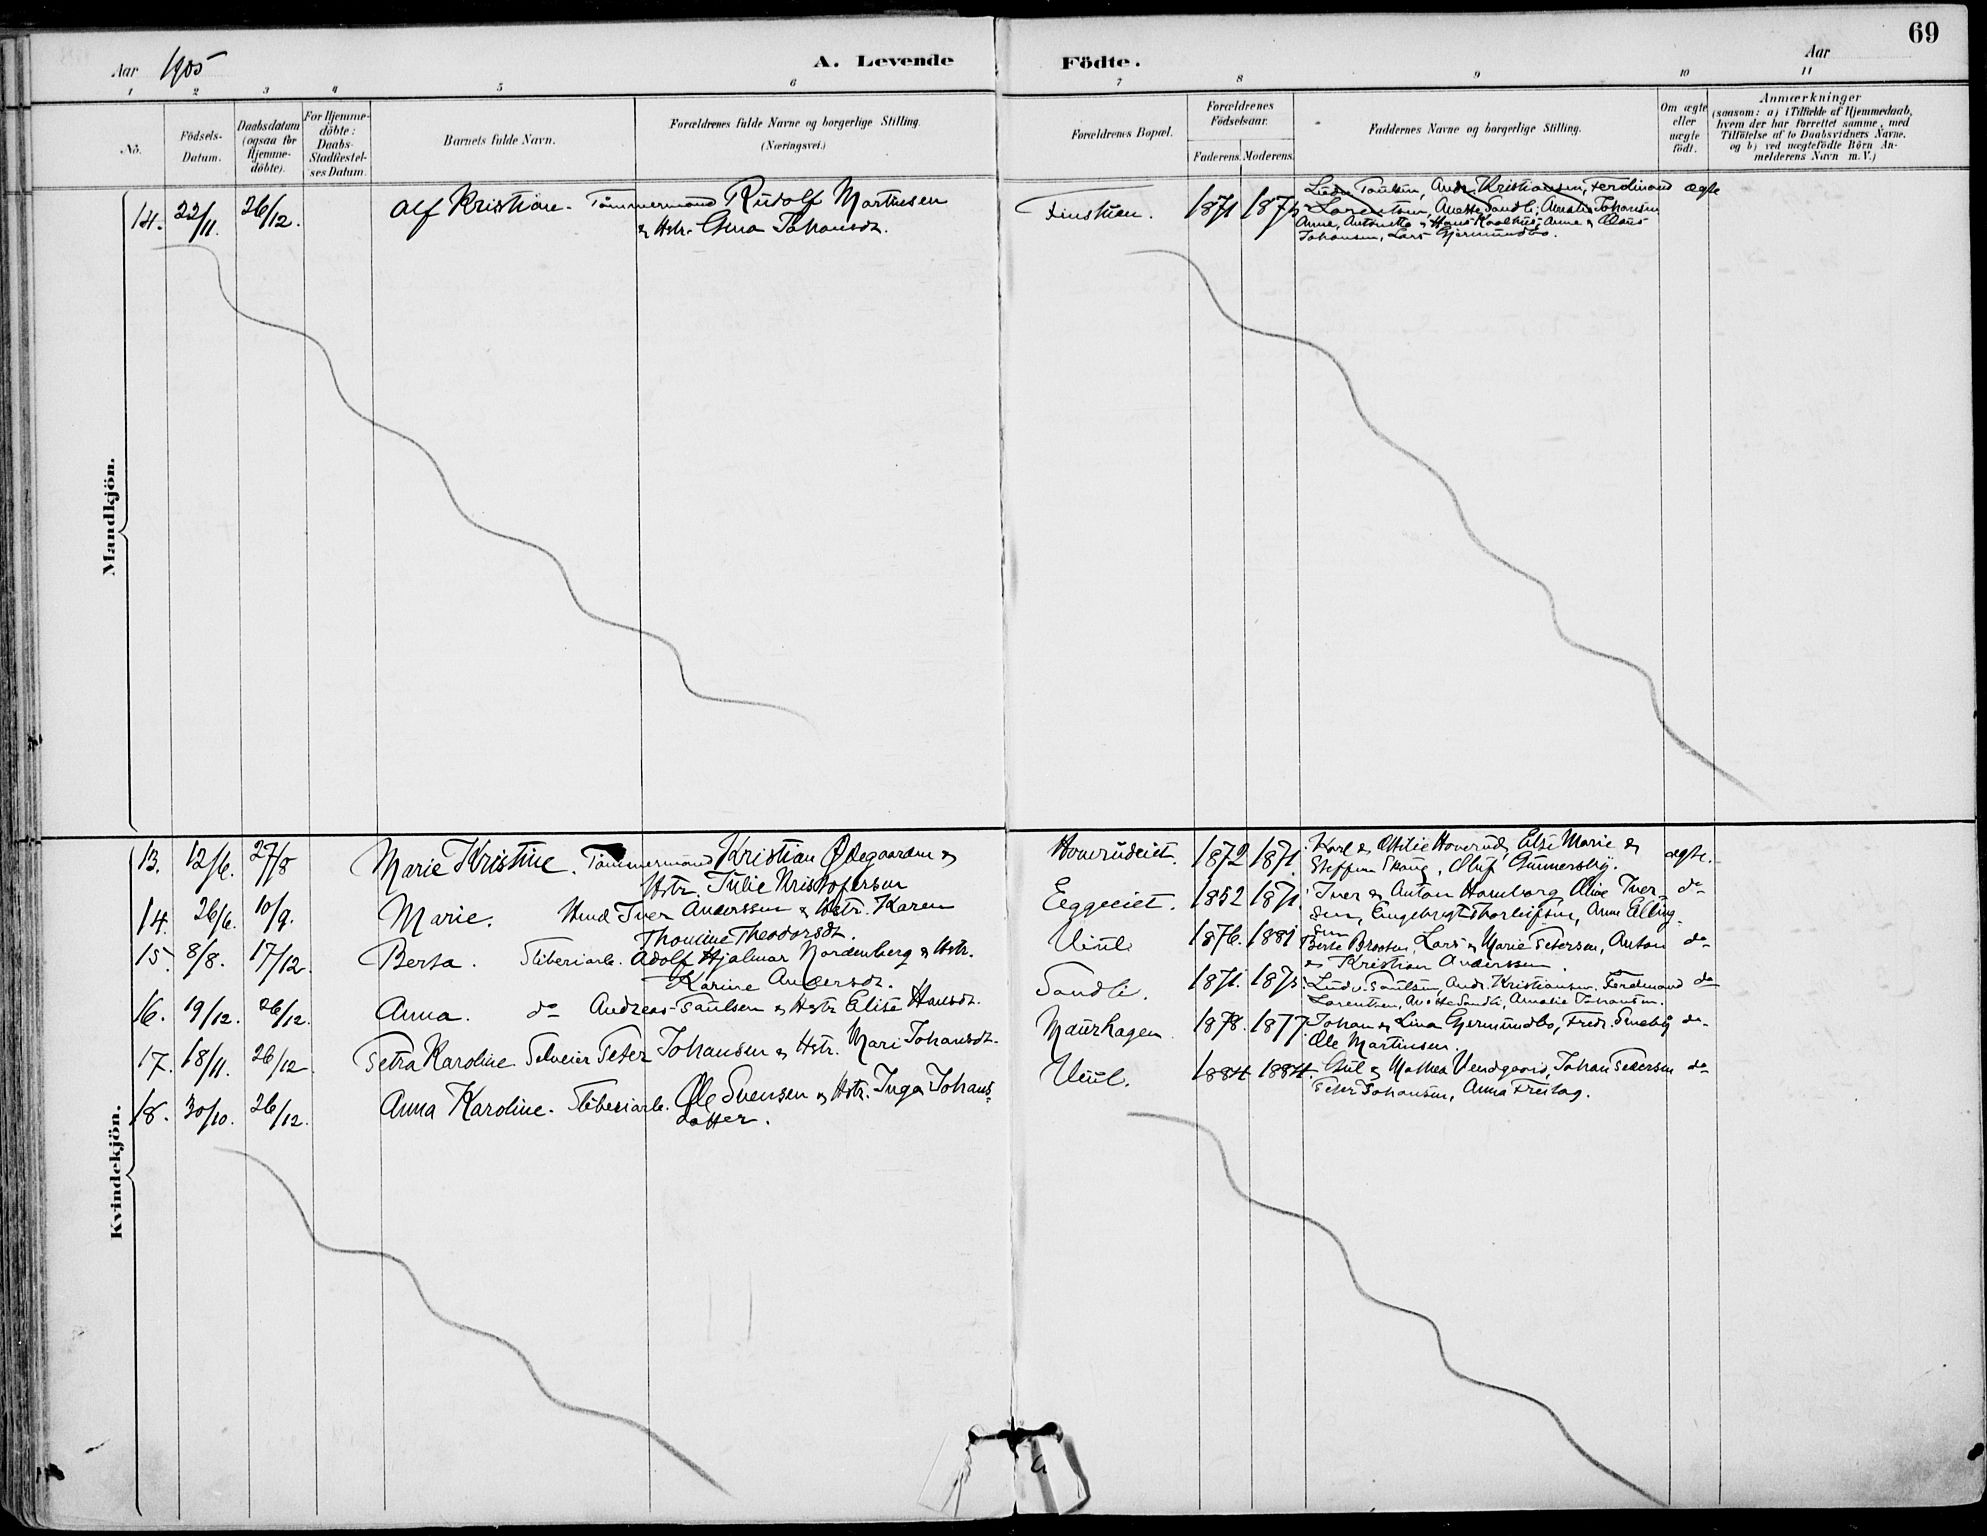 69
Aar 1905
A. Levende
Födte.
Aar
1 2 3 4 5 6 7 8 9 10 11
Nö.
Födsels-
Datum.
Daabsdatum
(ogsaa for
Hjemme-
döbte).
For Hjemme-
döbte:
Daabs-
Stadfæstel-
ses Datum.
Barnets fulde Navn.
Forældrenes fulde Navne og borgerlige Stilling.
(Næringsvei.)
Forældrenes Bopæl.
Forældrenes
Födselsaar.
Faderens. Moderens.
Faddernes Navne og borgerlige Stilling.
Om ægte
eller
uægte
födt.
Anmærkninger
(saasom: a) i Tilfælde af Hjemmedaab,
hvem der har forrettet samme, med
Tilföielse af to Daabsvidners Navne.
og b) ved uægtefödte Börn An-
melderens Navn m. V.)
Mandkjön.
14. 22/11. 26/12. Alf Kristian. Tömmermand Rudolf Martinsen
& Hstr. Gina Johansdt.
1871
Andr. Kristiansen, Ferdinand
Lorentsen, Anette Sandli, Amalie Johansen
Johansen, Lars Gjermundbo.
ægte
Kvindekjön.
13. 12/6. 27/8 Marie Kristine. Tömmermand Kristian Ödegaarden &
Hstr. Julie Kristofersen
Honerudeiet. 1872 1871.
Karl & Otilie Honerud, Else Marie &
Steffen Skaug, Oluf Gunnersby.
ægte.
14. 26/6. 10/9. Marie. Hmd Iver Anderssen & Hstr. Karen
Thomine Theodorsdt.
Eggeeiet. 1852 1871.
Iver & Anton Hamborg, Olive Iver-
sen, Engebregt Thorleifsen, Anne Elling-
sen
do
15. 8/8. 17/12. Berta. Sliberiarb. Adolf Hjalmar Nordenberg & Hstr.
Karine Andersdt.
Viul 1876. 1881
Berte Braaten, Lars & Marie Petersen, Anton
& Kristian Anderssen.
do
16. 19/12. 26/12. Anna. do Andreas Paulsen & Hstr Elise Hansdt.
Sandli. 1871.
Ludv. Paulsen, Andr. Kristiansen, Ferdinand
Lorentsen, Anette Sandli, Amalie Johansen.
do
17. 18/11. 26/12 Petra Karoline Peter Johansen & Hstr. Mari Johansdt.
Maurhagen 1878. 1877.
Johan & Lina Gjermundbo, Fredr. Smeby
Ole Martinsen.
do
18. 30/10. 26/12. Anna Karoline. Sliberiarb. Ole Svensen & Hstr. Inga Johans-
datter.
Viul. 1884 1884.
Gul & Mathea Vendgaard, Johan Pedersen
Peter Johansen, Anna Freitag.
do